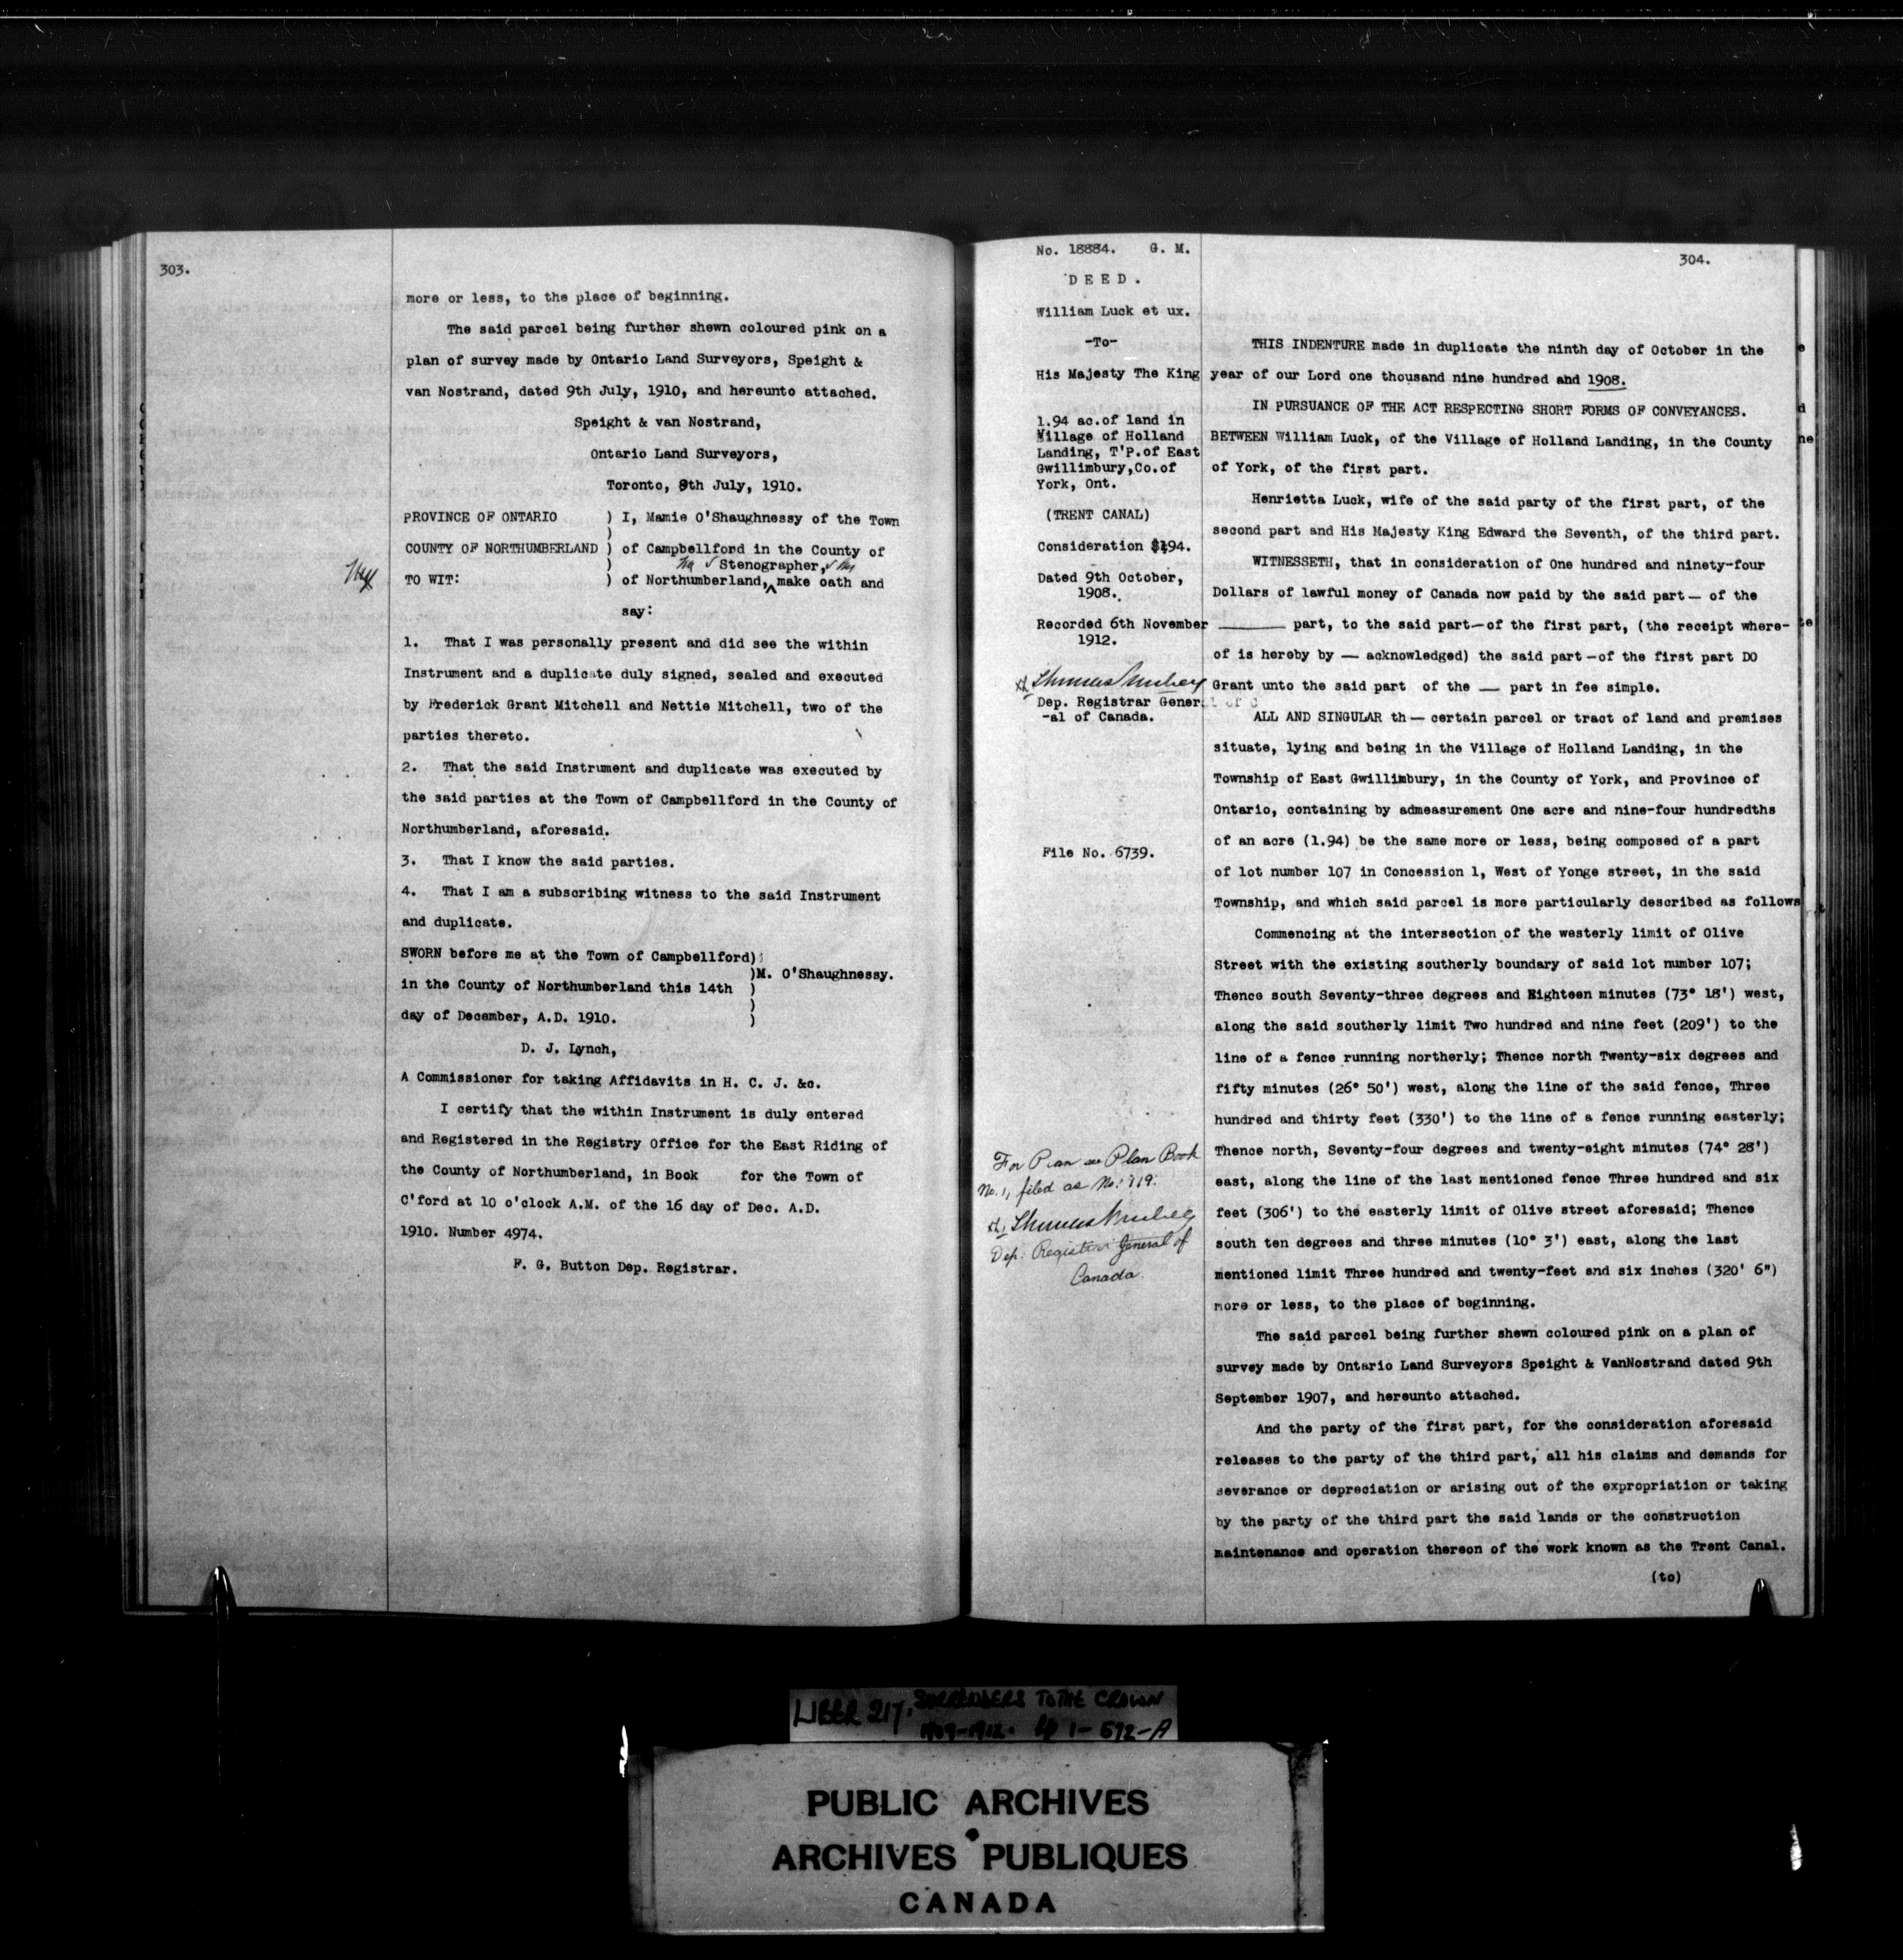 303.
more or less, to the place of beginning.
The said parcel being further shewn coloured pink on a
plan of survey made by Ontario Land Surveyors, Speight &
van Nostrand, dated 9th July, 1910, and hereunto attached.
Speight & van Nostrand,
Ontario Land Surveyors,
Toronto, 9th July, 1910.
PROVINCE OF ONTARIO ) I, Mamie O'Shaughnessy of the Town
)
COUNTY OF NORTHUMBERLAND ) of Campbellford in the County of
) Stenographer,
TO WIT: ) of Northumberland, make oath and
say:
1. That I was personally present and did see the within
Instrument and a duplicate duly signed, sealed and executed
by Frederick Grant Mitchell and Nettie Mitchell, two of the
parties thereto.
2. That the said Instrument and duplicate was executed by
the said parties at the Town of Campbellford in the County of
Northumberland, aforesaid.
3. That I know the said parties.
4. That I am a subscribing witness to the said Instrument
and duplicate.
SWORN before me at the Town of Campbellford)
)M. O'Shaughnessy.
in the County of Northumberland this 14th )
)
day of December, A.D. 1910. )
D. J. Lynch,
A Commissioner for taking Affidavits in H. C. J. &c.
I certify that the within Instrument is duly entered
and Registered in the Registry Office for the East Riding of
the County of Northumberland, in Book for the Town of
C'ford at 10 o'clock A.M. of the 16 day of Dec. A.D.
1910. Number 4974.
F. G. Button Dep. Registrar.
No. 18884. G. M.
DEED.
William Luck et ux.
-To-
His Majesty The King
1.94 ac.of land in
Village of Holland
Landing, T'P.of East
Gwillimbury,Co.of
York, Ont.
(TRENT CANAL)
Consideration $194.
Dated 9th October,
1908.
Recorded 6th November
1912.
Dep. Registrar Gener
-al of Canada.
File No. 6739.
For Plan see Plan Book
No. 1, filed as No. 719.
Dep. Registrar General of
Canada.
304.
THIS INDENTURE made in duplicate the ninth day of October in the
year of our Lord one thousand nine hundred and 1908.
IN PURSUANCE OF THE ACT RESPECTING SHORT FORMS OF CONVEYANCES.
BETWEEN William Luck, of the Village of Holland Landing, in the County
of York, of the first part.
Henrietta Luck, wife of the said party of the first part, of the
second part and His Majesty King Edward the Seventh, of the third part.
WITNESSETH, that in consideration of One hundred and ninety-four
Dollars of lawful money of Canada now paid by the said part — of the
——— part, to the said part—of the first part, (the receipt where-
of is hereby by — acknowledged) the said part—of the first part DO
Grant unto the said part of the — part in fee simple.
ALL AND SINGULAR th— certain parcel or tract of land and premises
situate, lying and being in the Village of Holland Landing, in the
Township of East Gwillimbury, in the County of York, and Province of
Ontario, containing by admeasurement One acre and nine-four hundredths
of an acre (1.94) be the same more or less, being composed of a part
of lot number 107 in Concession 1, West of Yonge street, in the said
Township, and which said parcel is more particularly described as follows
Commencing at the intersection of the westerly limit of Olive
Street with the existing southerly boundary of said lot number 107;
Thence south Seventy-three degrees and Eighteen minutes (73° 18') west,
along the said southerly limit Two hundred and nine feet (209') to the
line of a fence running northerly; Thence north Twenty-six degrees and
fifty minutes (26° 50') west, along the line of the said fence, Three
hundred and thirty feet (330') to the line of a fence running easterly;
Thence north, Seventy-four degrees and twenty-eight minutes (74° 28')
east, along the line of the last mentioned fence Three hundred and six
feet (306') to the easterly limit of Olive street aforesaid; Thence
south ten degrees and three minutes (10° 3') east, along the last
mentioned limit Three hundred and twenty-feet and six inches (320' 6")
more or less, to the place of beginning.
The said parcel being further shewn coloured pink on a plan of
survey made by Ontario Land Surveyors Speight & VanNostrand dated 9th
September 1907, and hereunto attached.
And the party of the first part, for the consideration aforesaid
releases to the party of the third part, all his claims and demands for
severance or depreciation or arising out of the expropriation or taking
by the party of the third part the said lands or the construction
maintenance and operation thereon of the work known as the Trent Canal.
(to)
LIBER 217. SURRENDERS TO THE CROWN
1909-1912. pp 1-592-A
PUBLIC ARCHIVES
ARCHIVES PUBLIQUES
CANADA